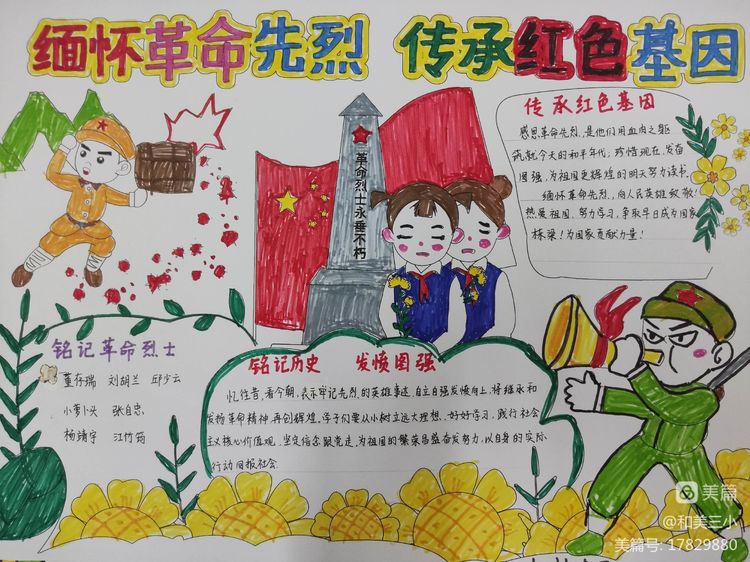 缅怀革命先烈 传承红色基因
传承红色基因
感恩革命先烈,是他们用血肉之躯
筑就今天的和平年代,珍惜现在,发奋
图强,为祖国更辉煌的明天努力读书。
缅怀革命先烈,向人民英雄致敬!
热爱祖国,努力学习,争取早日成为国家
栋梁!为国家贡献力量!
革命烈士永垂不朽
铭记革命烈士
董存瑞 刘胡兰 邱少云
小萝卜头 张自忠
杨靖宇 江竹筠
铭记历史 发愤图强
忆往昔,看今朝,表示牢记先烈的英雄事迹,自立自强发愤向上,将继承和
发扬革命精神,再创辉煌。学子们要从小树立远大理想,好好学习,践行社会
主义核心价值观,坚定信念跟党走,为祖国的繁荣昌盛奋发努力,以自身的实际
行动回报社会
美篇
@和美三小
美篇号: 17829880